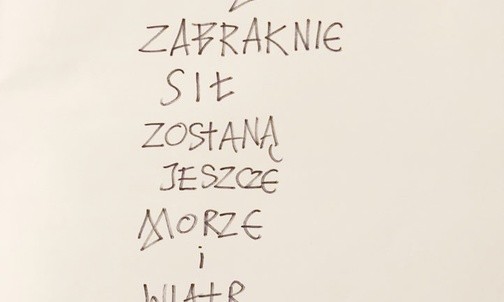 ZABRAKNIE
SIŁ
ZOSTANĄ
JESZCZE
MORZE
i
WIATR